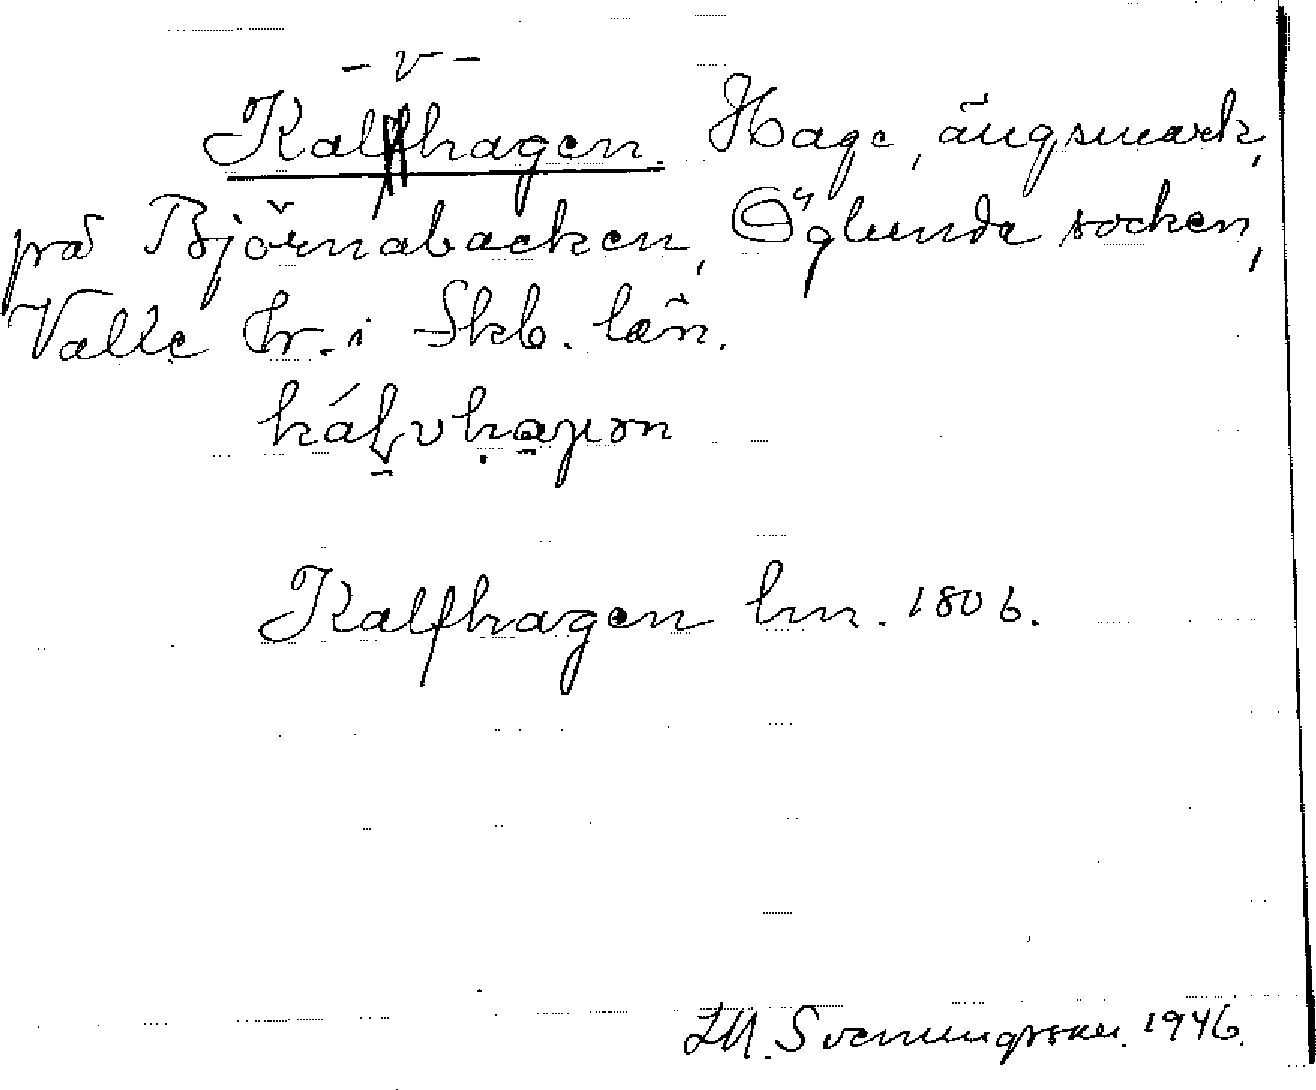 - v -
Kalfhagen. Hage, ängsmark,
på Björnabacken, Öglunda socken,
Valle hr. i Skb. län.
kálvhaγən
Kalfhagen hm. 1806.
Sveningsson. 1946.